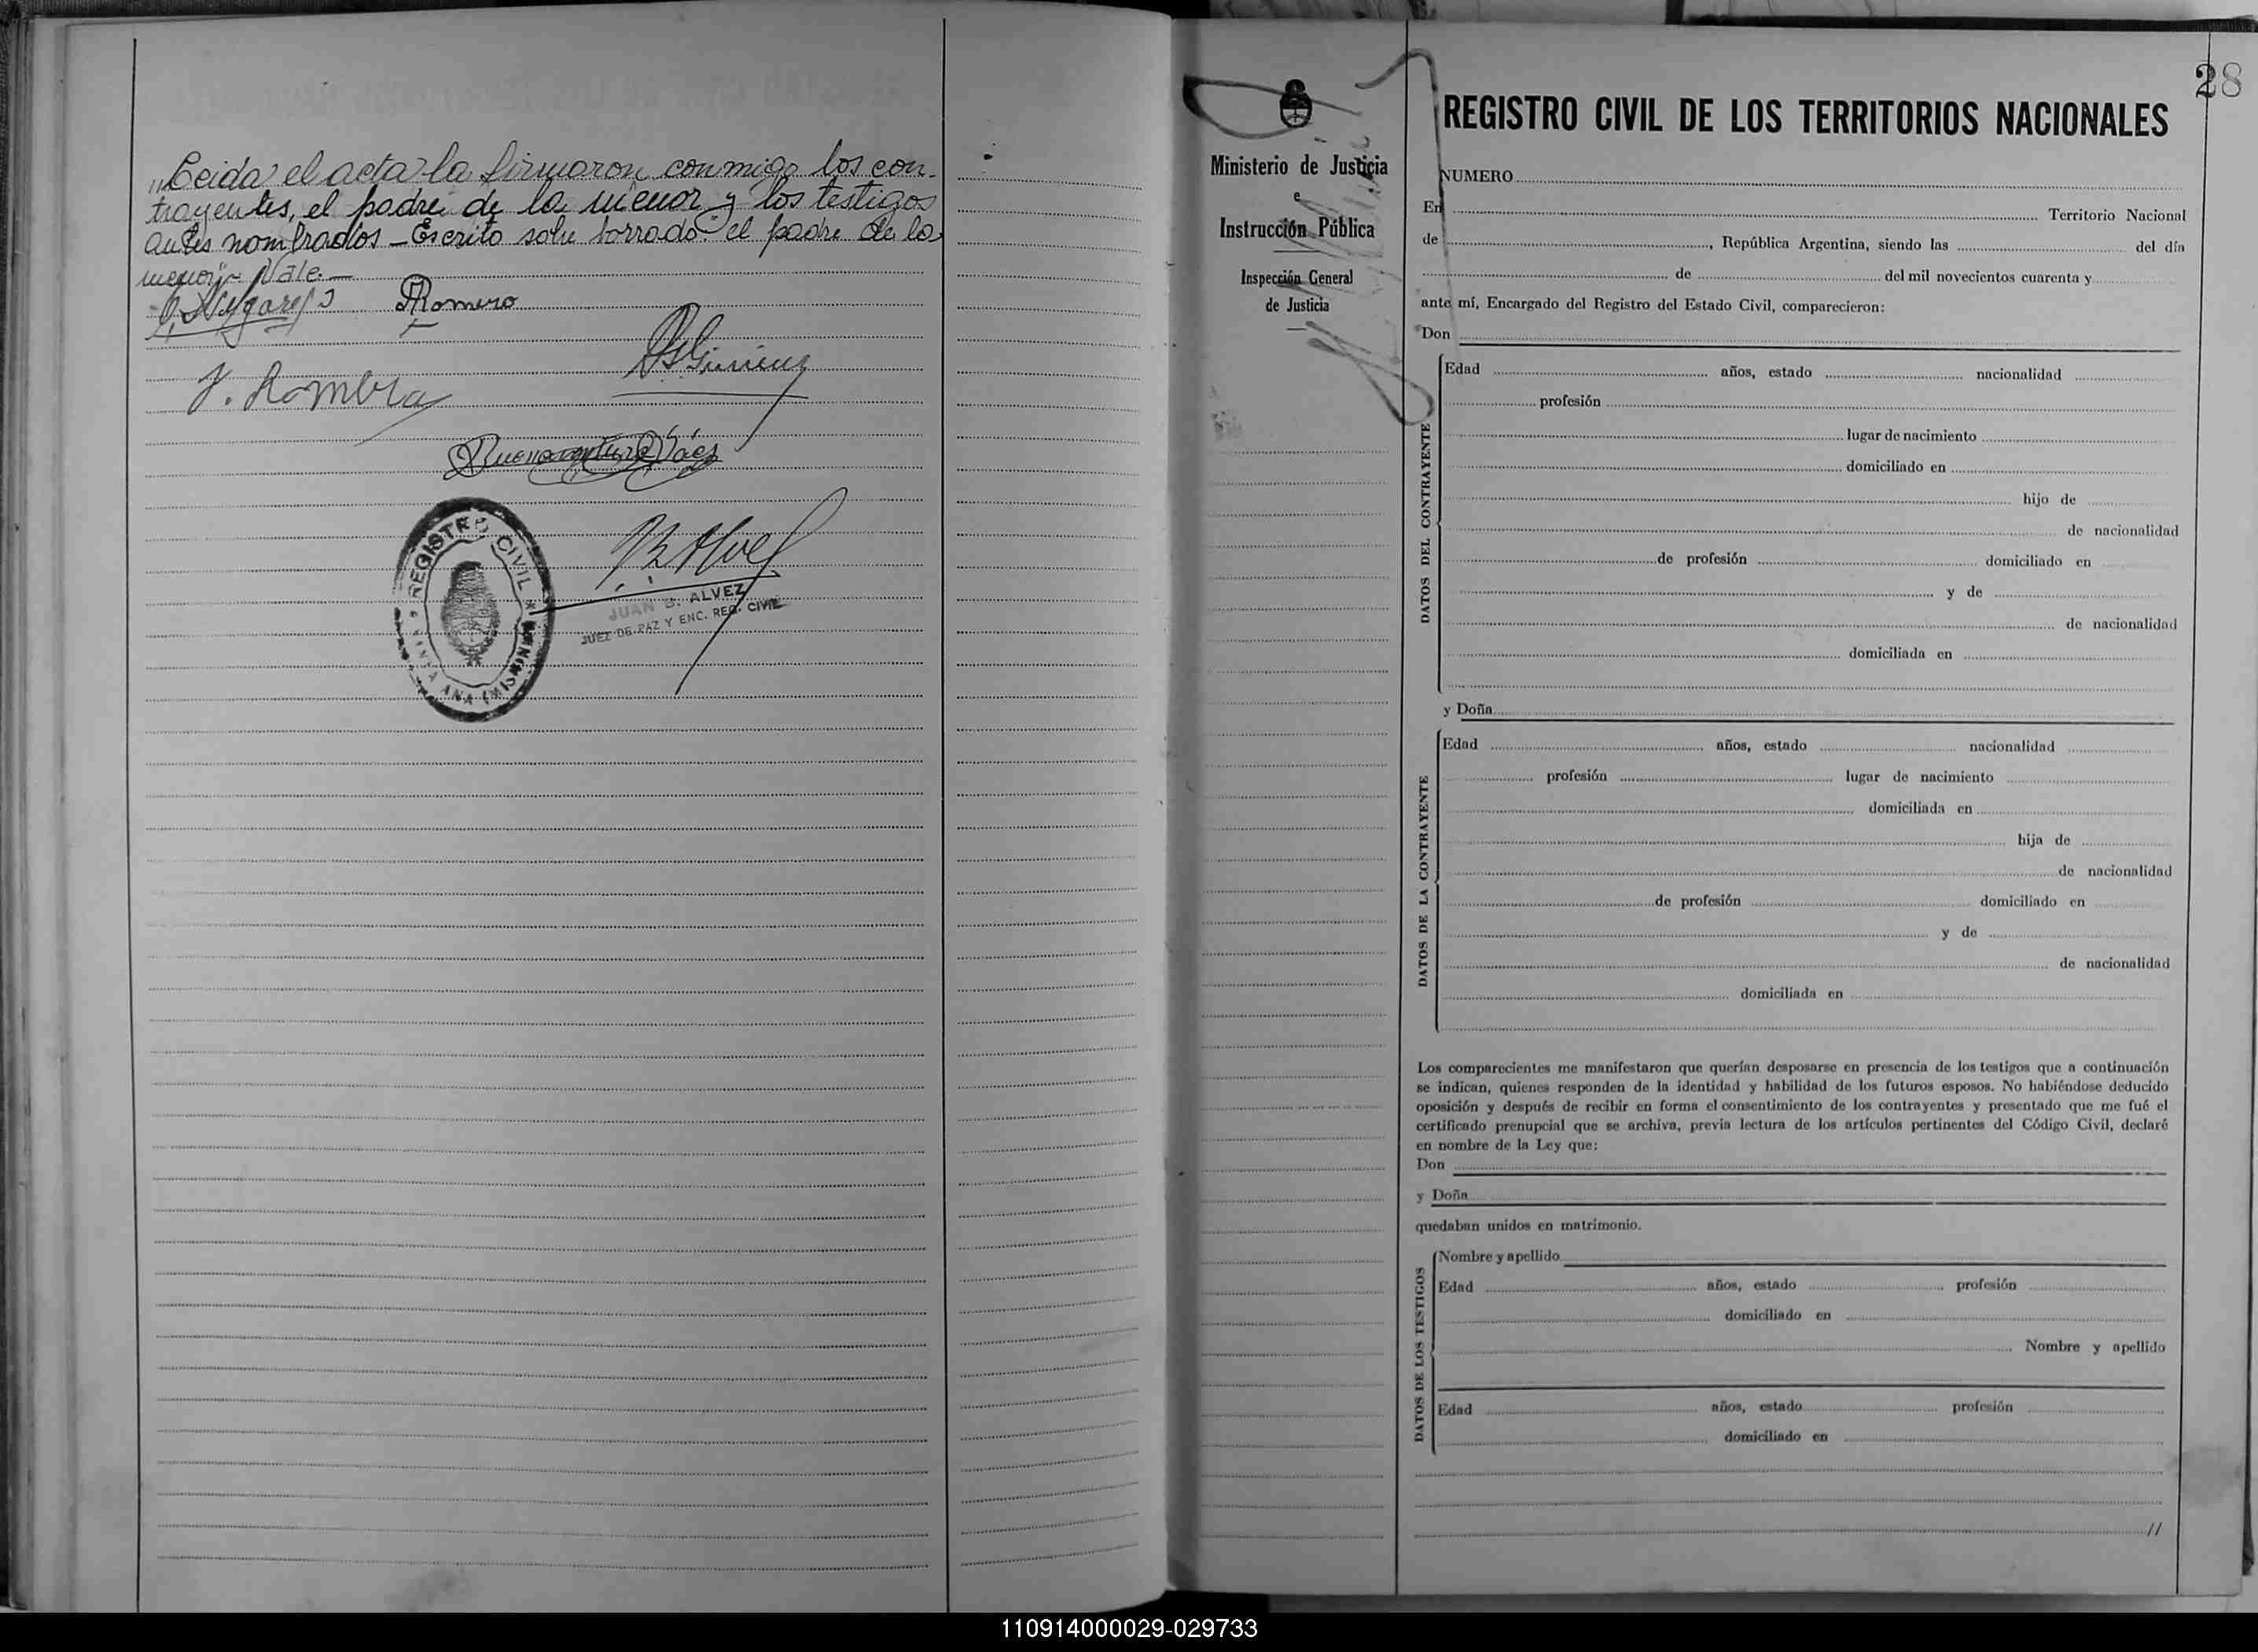 "Leida el acta la firmaron conmigo los con-
trayentes, el padre de la menor y los testigos
antes nombrados - Escrito sobre borrado: el padre de la
menor - Vale. -
Romero
REGISTRO CIVIL
SANTA ANA (MISIONES)
JUAN B. ALVEZ
JUEZ DE PAZ Y ENC. REG. CIVIL
28
Ministerio de Justicia
e
Instrucción Pública
Inspección General
de Justicia
REGISTRO CIVIL DE LOS TERRITORIOS NACIONALES
NUMERO
En Territorio Nacional
de , República Argentina, siendo las del día
de del mil novecientos cuarenta y
ante mí, Encargado del Registro del Estado Civil, comparecieron:
Don
DATOS DEL CONTRAYENTE
Edad años, estado nacionalidad
profesión
lugar de nacimiento
domiciliado en
hijo de
de nacionalidad
de profesión domiciliado en
y de
de nacionalidad
domiciliada en
y Doña
DATOS DE LA CONTRAYENTE
Edad años, estado nacionalidad
profesión lugar de nacimiento
domiciliada en
hija de
de nacionalidad
de profesión domiciliado en
y de
de nacionalidad
domiciliada en
Los comparecientes me manifestaron que querían desposarse en presencia de los testigos que a continuación
se indican, quienes responden de la identidad y habilidad de los futuros esposos. No habiéndose deducido
oposición y después de recibir en forma el consentimiento de los contrayentes y presentado que me fué el
certificado prenupcial que se archiva, previa lectura de los artículos pertinentes del Código Civil, declaré
en nombre de la Ley que:
Don
y Doña
quedaban unidos en matrimonio.
DATOS DE LOS TESTIGOS
Nombre y apellido
Edad años, estado profesión
domiciliado en
Nombre y apellido
Edad años, estado profesión
domiciliado en
//
110914000029-029733